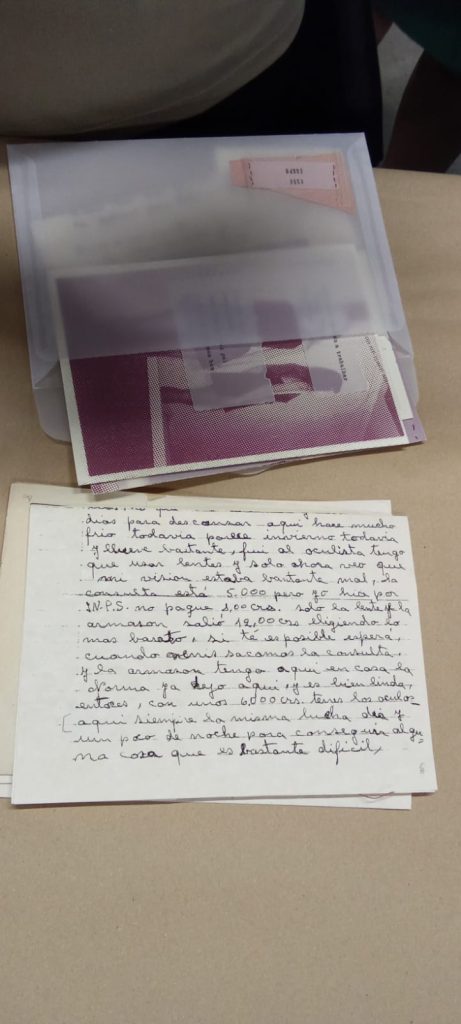 a trabajar
dias para descanzar aqui hace mucho
frio todavia parece invierno todavia
y llueve bastante, fui al oculista tengo
que usar lentes y solo ahora veo que
mi vision estaba bastante mal, la
consulta está 5.000 pero yo hua por
I.N.P.S. no pague 1,00 crs. solo la lente y la
armason salió 12,00 crs eligiendo lo
mas barato, si té es posible espera,
cuando venis sacamos la consulta,
y la armason tengo aqui en casa la
Norma ya dejo aqui, y es bien linda,
entoces, con unos 6.000 crs. tenes los oculos
aqui siempre la misma lucha dia y
un poco de noche para conseguir algu=
na cosa que es bastante dificil,